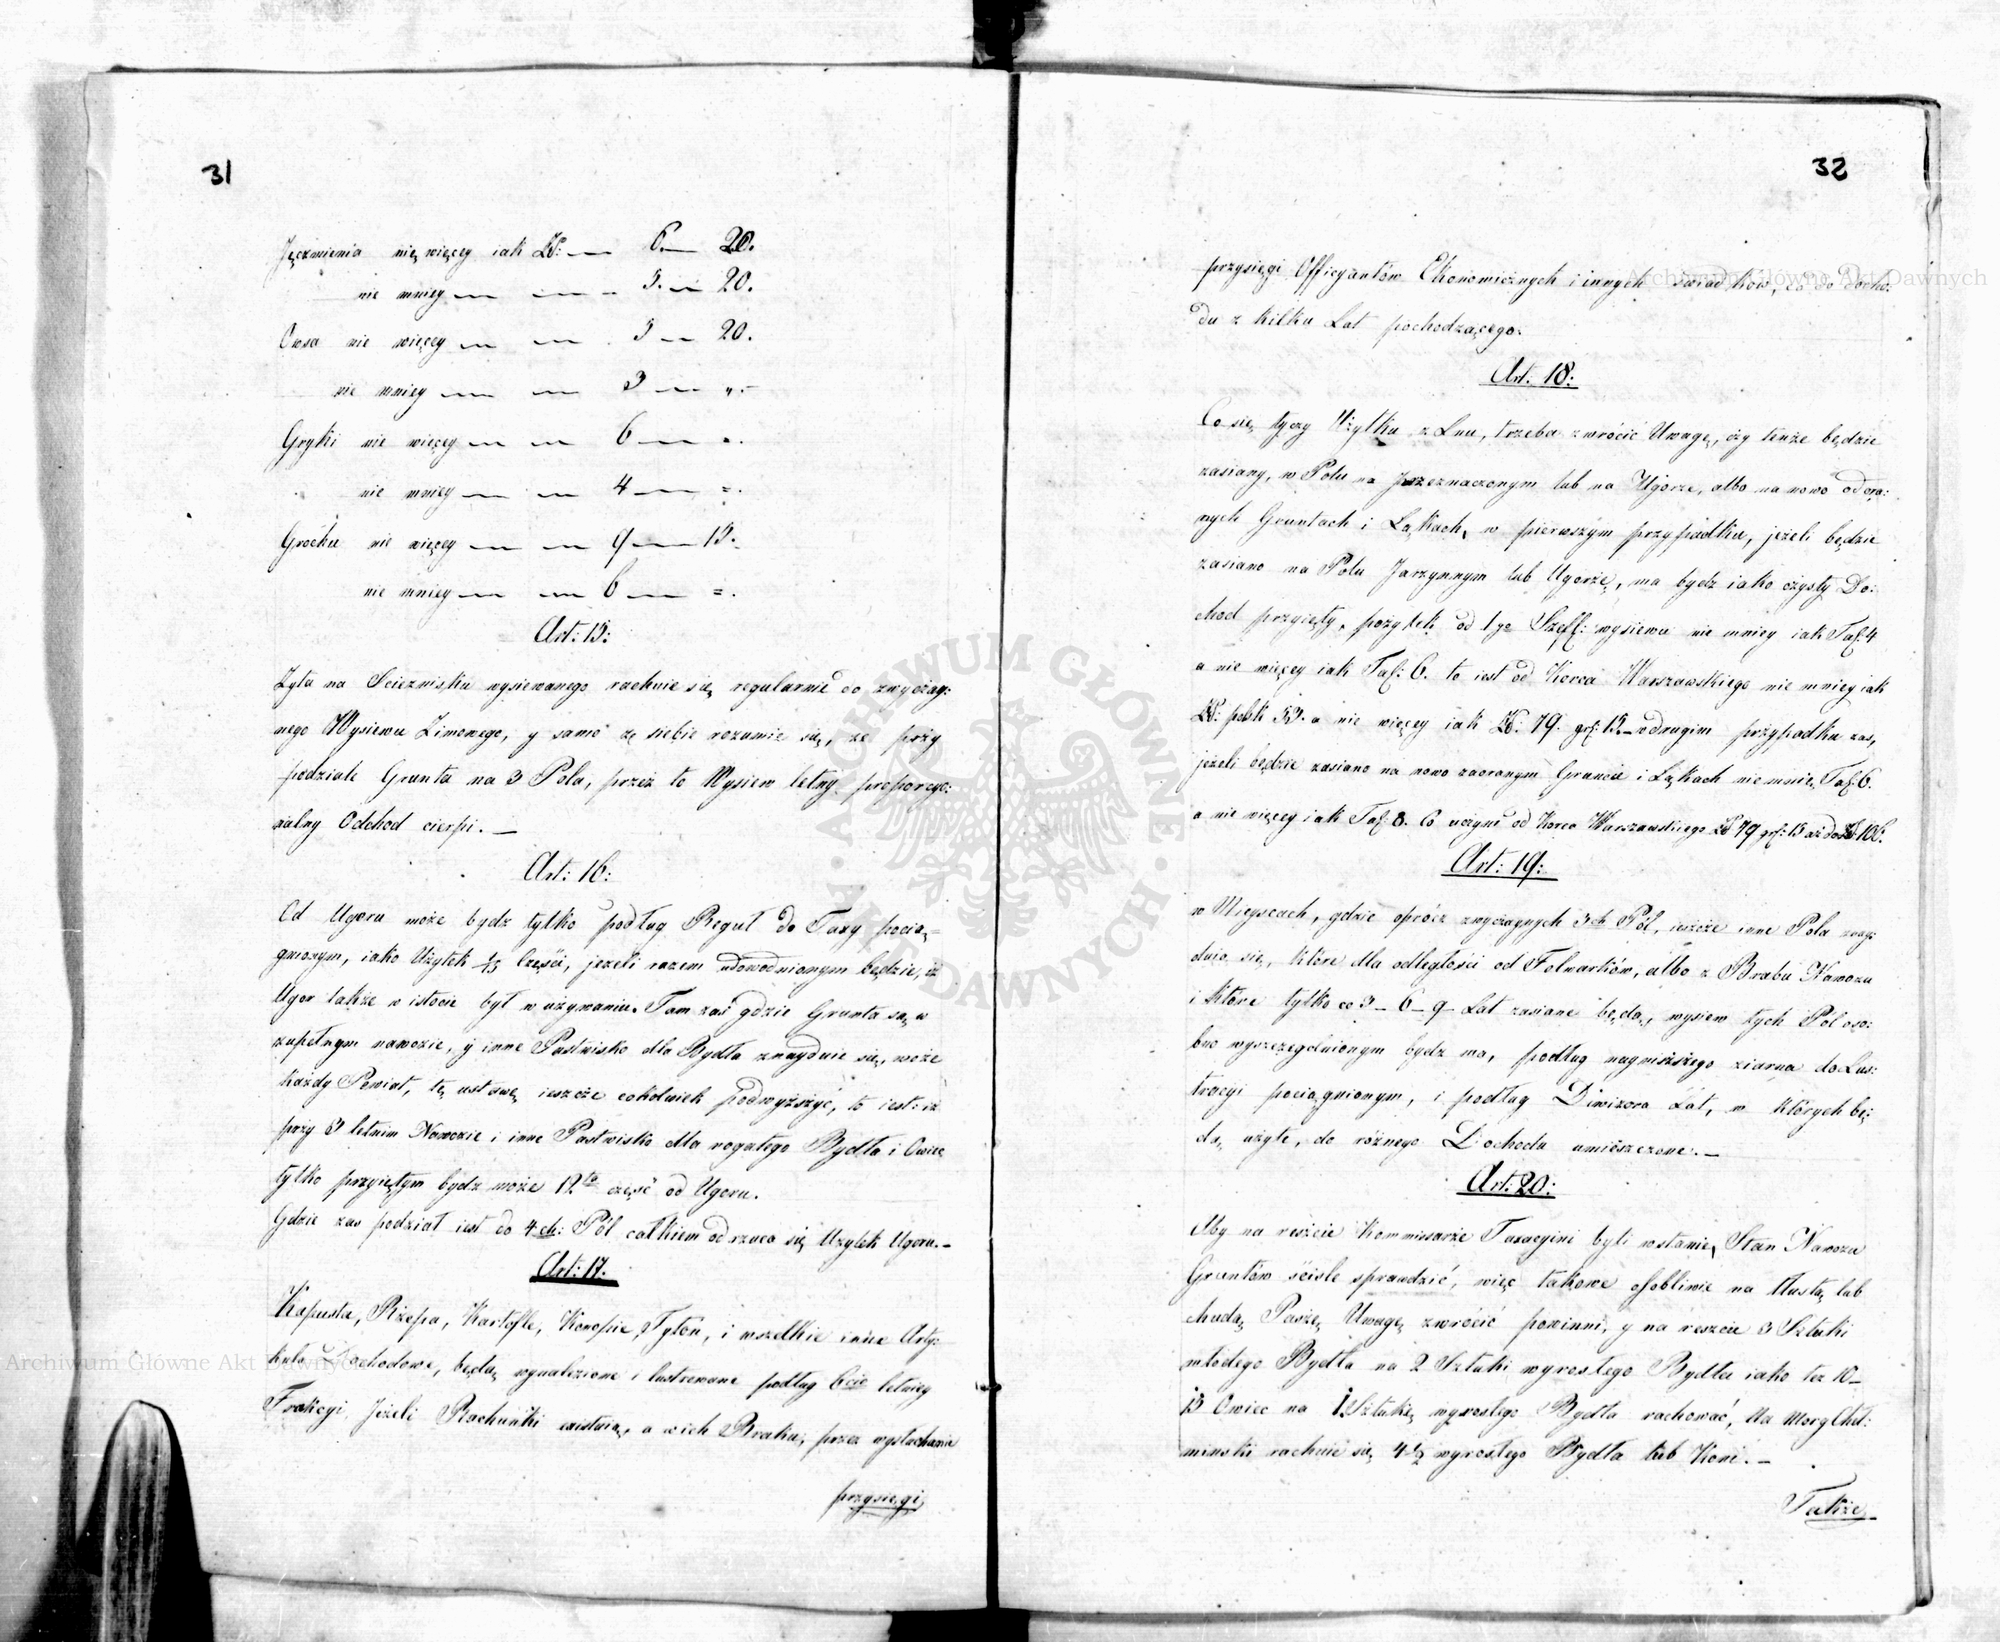 31
Jęczmienia nie więcey iak Zł: — 6. — 20.
nie mniey — — 5. — 20.
Owsa nie więcey — — 5 — 20.
nie mniey — — 3 — „ —
Gryki nie więcey — — 6 — =.
nie mniey — — 4 — =.
Grochu nie więcey — — 9 — 15.
nie mniey — — 6 — =.
Art: 15:
Żyta na Scierznisku wysiewanego rachuie się regularnie do zwyczay:
nego Wysiewu Zimowego, y samo ze siebie rozumie się, że przy
podziale Gruntu na 3 Pola, przez to Wysiew letny proporcyo:
nalny Odchod cierpi. —
Art: 16:
Od Ugoru może bydz tylko podług Reguł do Taxy pocią=
gnionym, iako Użytek 1/15 Części, jeżeli razem udowodnionym będzie, iż
Ugor także w istocie był w używaniu. Tam zaś gdzie Grunta są w
zupełnym nawozie, y inne Pastwisko dla Bydła znayduie się, może
każdy Powiat, tę ustawę ieszcze cokolwiek podwyższyć, to iest: iż
przy 3 letnim Nawozie i inne Pastwisko dla rogatego Bydła i Owiec
tylko przyiętym bydz może 12ta część od Ugoru.
Gdzie zas podział iest do 4ch: Pól całkiem odrzuca się Użytek Ugoru. —
Art: 17.
Kapusta, Rzepa, Kartofle, Konopie, Tytoń, i wszelkie inne Arty:
kuły Dochodowe, będą wynalezione i lustrowane podług 6cio letniey
Frakcyi. Jeżeli Rachunki existuią, a w ich Braku, przez wysłuchanie
przysięgi
32
przysięgi Officyantów Ekonomicznych i innych świadków, co do docho:
du z kilku Lat pochodzącego.
Art: 18:
Co się tyczy Użytku z Lnu, trzeba zwrócić Uwagę, czy tenże będzie
zasiany, w Polu na przeznaczonym lub na Ugorze, albo na nowo odora:
nych Gruntach i Łąkach, w pierwszym przypadku, jeżeli będzie
zasiano na Polu Jarzynnym lub Ugorze, ma bydz iako czysty Do:
chod przyięty, pożytek od 1go Szeff: wysiewu nie mniey iak Tal: 4
a nie więcey iak Tal: 6. to iest od Korca Warszawskiego nie mniey iak
Zł: polsk 53. a nie więcey iak Zł: 79. gr: 15. — w drugim przypadku zas,
jeżeli będzie zasiano na nowo zaoranym Gruncie i Łąkach nie mniey Tal: 6.
a nie więcey iak Tal: 8. Co uczyni od Korca Warszawskiego Zł 79 gr: 15 aż do Zł: 106.
Art: 19:
w Mieyscach, gdzie oprócz zwyczaynych 3ch Pól, ieszcze inne Pola znay:
duią się, które dla odległości od Folwarków, albo z Braku Nawozu
i które tylko co 3 — 6 — 9 Lat zasiane będą, wysiew tych Pol oso:
bno wyszczególnionym bydz ma, podług nayniższego ziarna do Lus:
tracyi pociągnionym, i podług Diwizora Lat, w których bę:
dą użyte, do rożnego Dochodu umieszczone. —
Art: 20:
Aby na reszcie Kommissarze Taxacyini byli w stanie, Stan Nawozu
Gruntów ściśle sprawdzić, więc takowe osobliwie na tłustą lub
chudą Paszę Uwagę zwrócić powinni, y na reszcie 3 Sztuki
młodego Bydła na 2 Sztuki wyrosłego Bydła iako też 10 —
15 Owiec na 1 Sztukę wyrosłego Bydła rachować, Na Morg Cheł:
minski rachuie się 4 1/2 wyrosłego Bydła lub Koni. —
Także